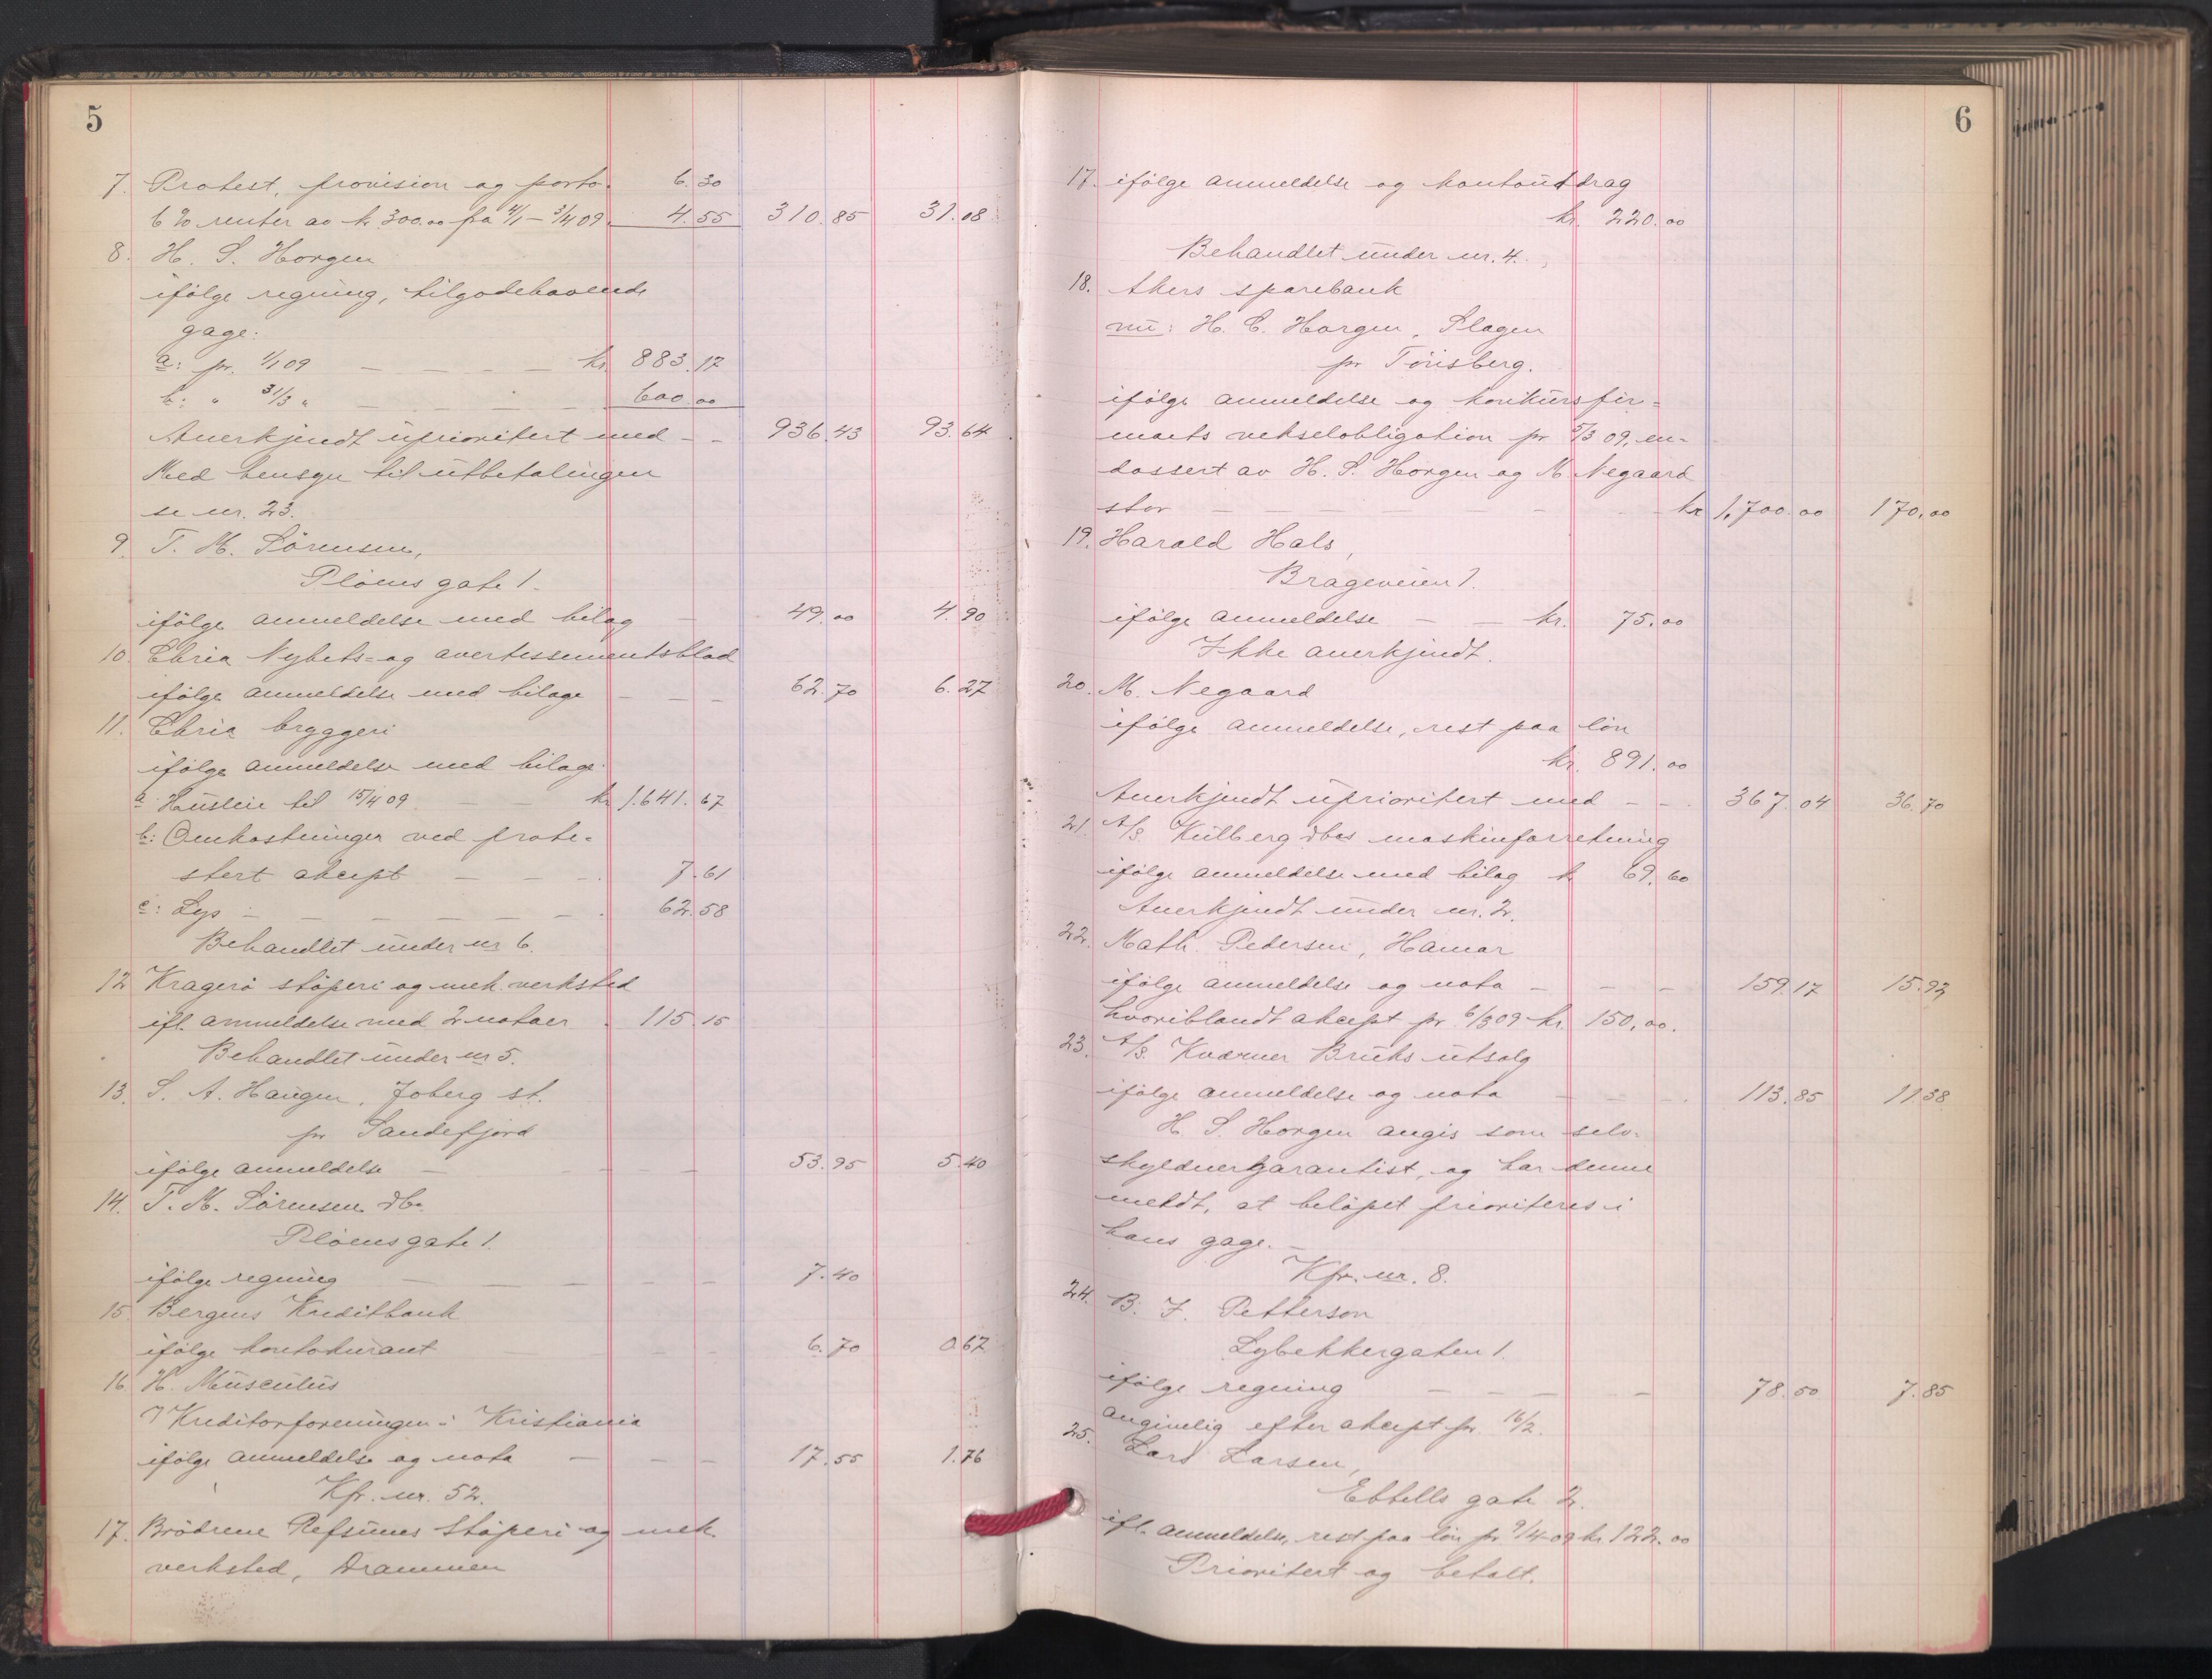 5
7. Protest, provision og porto. 6.30
6 % renter av kr 300.00 fra 4/1 - 3/4 09. 4.55 310.85 31.08
8. H. S. Horgen
ifölge regning, tilgodehavende
gage:
a: pr. 1/1 09 — — — — kr. 883.17
b: " 31/3 " — — — — 600.00
Anerkjendt uprioritert med - - 936.43 93.64
Med hensyn til utbetalingen
se nr. 23.
9. T. M. Sörensen,
Plöens gate 1.
ifölge anmeldelse med bilag — 49.00 4.90
10. Chria Nyhets- og avertissementsblad
ifölge anmeldelse med bilage — — — 62.70 6.27
11. Chria bryggeri
ifölge anmeldelse med bilage:
a: Husleie til 15/4 09 — — kr 1.641.67
b: Omkostninger ved prote-
stert akcept — — — 7.61
c: Lys — — — — — — 62.58
Behandlet under nr 6.
12 Kragerö stöperi og mek. verksted
ifl. anmeldelse med 2 notaer . 115.15
Behandlet under nr 5.
13. S. A. Haugen, Joberg st.
pr Sandefjord
ifölge anmeldelse — — — — 53.95 5.40
14. T. M. Sörensen dbo
Plöensgate 1.
ifölge regning — — — — — 7.40
15. Bergens Kreditbank
ifölge kontokurant — — — 6.70 0.67
16 H. Musculus
Kreditorforeningen i Kristiania
ifölge anmeldelse og nota — — — 17.55 1.76
Kfr. nr. 52.
17. Brödrene Refsunes Stöperi og mek.
verksted, Drammen
6
17. ifölge anmeldelse og kontoutdrag
kr. 220.00
Behandlet under nr. 4.
18. Akers sparebank
nu: H. C. Horgen, Slagen
pr Tönsberg.
ifölge anmeldelse og konkursfir-
maets vekselobligation pr 5/3 09, en-
dossert av H. S. Horgen og M. Negaard
stor — — — — — — kr 1,700.00 170.00
19. Harald Hals,
Brageveien 1.
ifölge anmeldelse — — kr. 75.00
Ikke anerkjendt.
20. M. Negaard
ifölge anmeldelse, rest paa lön
kr. 891.00
Anerkjendt uprioritert med - - 367.04 36.70
21. A/S Kulberg dbos maskinforretning
ifölge anmeldelse med bilag kr 69.60
Anerkjendt under nr. 2.
22. Math. Pedersen, Hamar
ifölge anmeldelse og nota — — — 159.17 15.92
hvoriblandt akcept pr 6/3 09 kr. 150,00.
23. A/S Kværner Bruks utsalg
ifölge anmeldelse og nota — — — 113.85 11.38
H. S. Horgen angis som selv-
skyldnergarantist, og har denne
meldt, at belöpet prioriteres i
hans gage. —
Kfr. nr. 8.
24. B. F. Petterson
Lybekkergaten 1.
ifölge regning — — — — 78.50 7.85
angivelig efter akcept pr 16/2.
25. Lars Larsen,
Ebbells gate 2.
ifl. anmeldelse, rest paa lön pr. 9/4-09 kr 122.00
Prioritert og betalt.